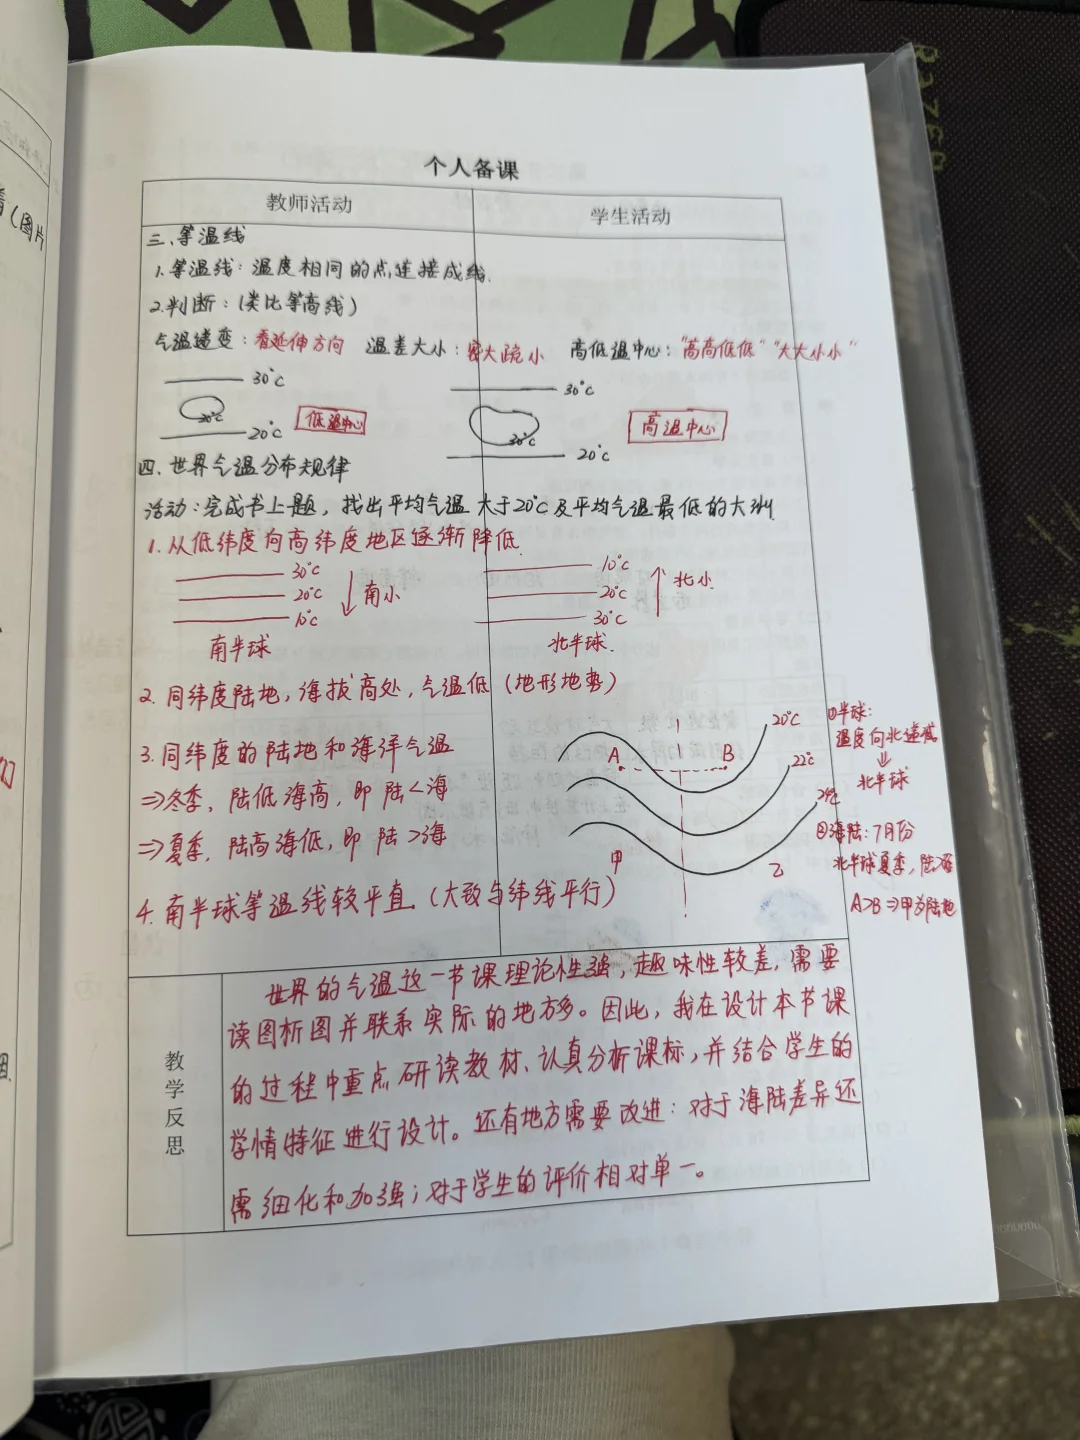 看(图片
个人备课
教师活动
学生活动
三、等温线
1. 等温线：温度相同的点连接成线.
2. 判断：(类比等高线)
气温递变：看延伸方向 温差大小：密大疏小 高低温中心：“高高低低”“大大小小”
30℃
20℃
20℃
低温中心
30℃
30℃
20℃
高温中心
四、世界气温分布规律
活动：完成书上题，找出平均气温大于20℃及平均气温最低的大洲.
1. 从低纬度向高纬度地区逐渐降低.
30℃
20℃
10℃
南小
南半球
10℃
20℃
30℃
北小
北半球.
2. 同纬度陆地，海拔高处，气温低 (地形地势)
3. 同纬度的陆地和海洋气温
⇒冬季，陆低海高，即陆<海
⇒夏季，陆高海低，即陆>海
4. 南半球等温线较平直.(大致与纬线平行)
A B
20℃
22℃
甲 乙
①半球：
温度向北递减
⇓
北半球
②海陆：7月份
北半球夏季，陆>海
A>B ⇒甲为陆地
教学反思
世界的气温这一节课理论性强，趣味性较差，需要
读图析图并联系实际的地方多。因此，我在设计本节课
的过程中重点研读教材、认真分析课标，并结合学生的
学情特征进行设计。还有地方需要改进：对于海陆差异还
需细化和加强；对于学生的评价相对单一。